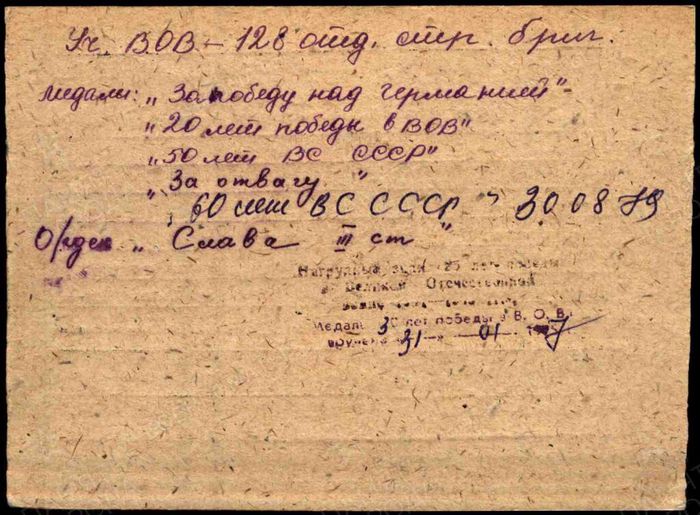 Уч. ВОВ – 128 отд. стр. бриг.
медали: „За победу над германией"-
„20 лет победы в ВОВ"
„50 лет ВС СССР"
„За отвагу "
60 лет ВС СССР - 30 08 79
Орден „Слава III ст "
Нагрудный знак «25 лет победы
в Великой Отечественной
Медаль 30 лет победы в В. О. В.
вручена 31 01